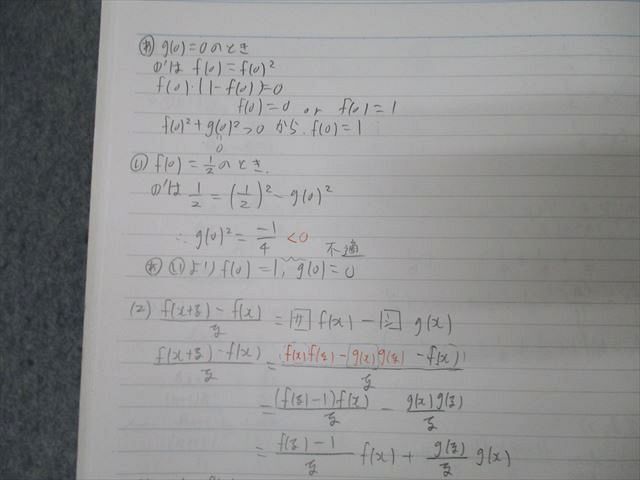 (あ) g(0)=0のとき
①'は f(0)=f(0)²
f(0)·(1-f(0))=0
f(0)=0 or f(0)=1
f(0)²+g(0)²>0 から、f(0)=1
0
(い) f(0)=1/2のとき、
①'は 1/2=(1/2)²-g(0)²
∴ g(0)²=-1/4 <0
不適
(あ)(い)より f(0)=1, g(0)=0
(2) (f(x+h)-f(x))/h = サ f(x) - シ g(x)
(f(x+h)-f(x))/h = (f(x)f(h)-g(x)g(h)-f(x))/h
=((f(h)-1)f(x))/h - (g(x)g(h))/h
= (f(h)-1)/h f(x) + g(h)/h g(x)